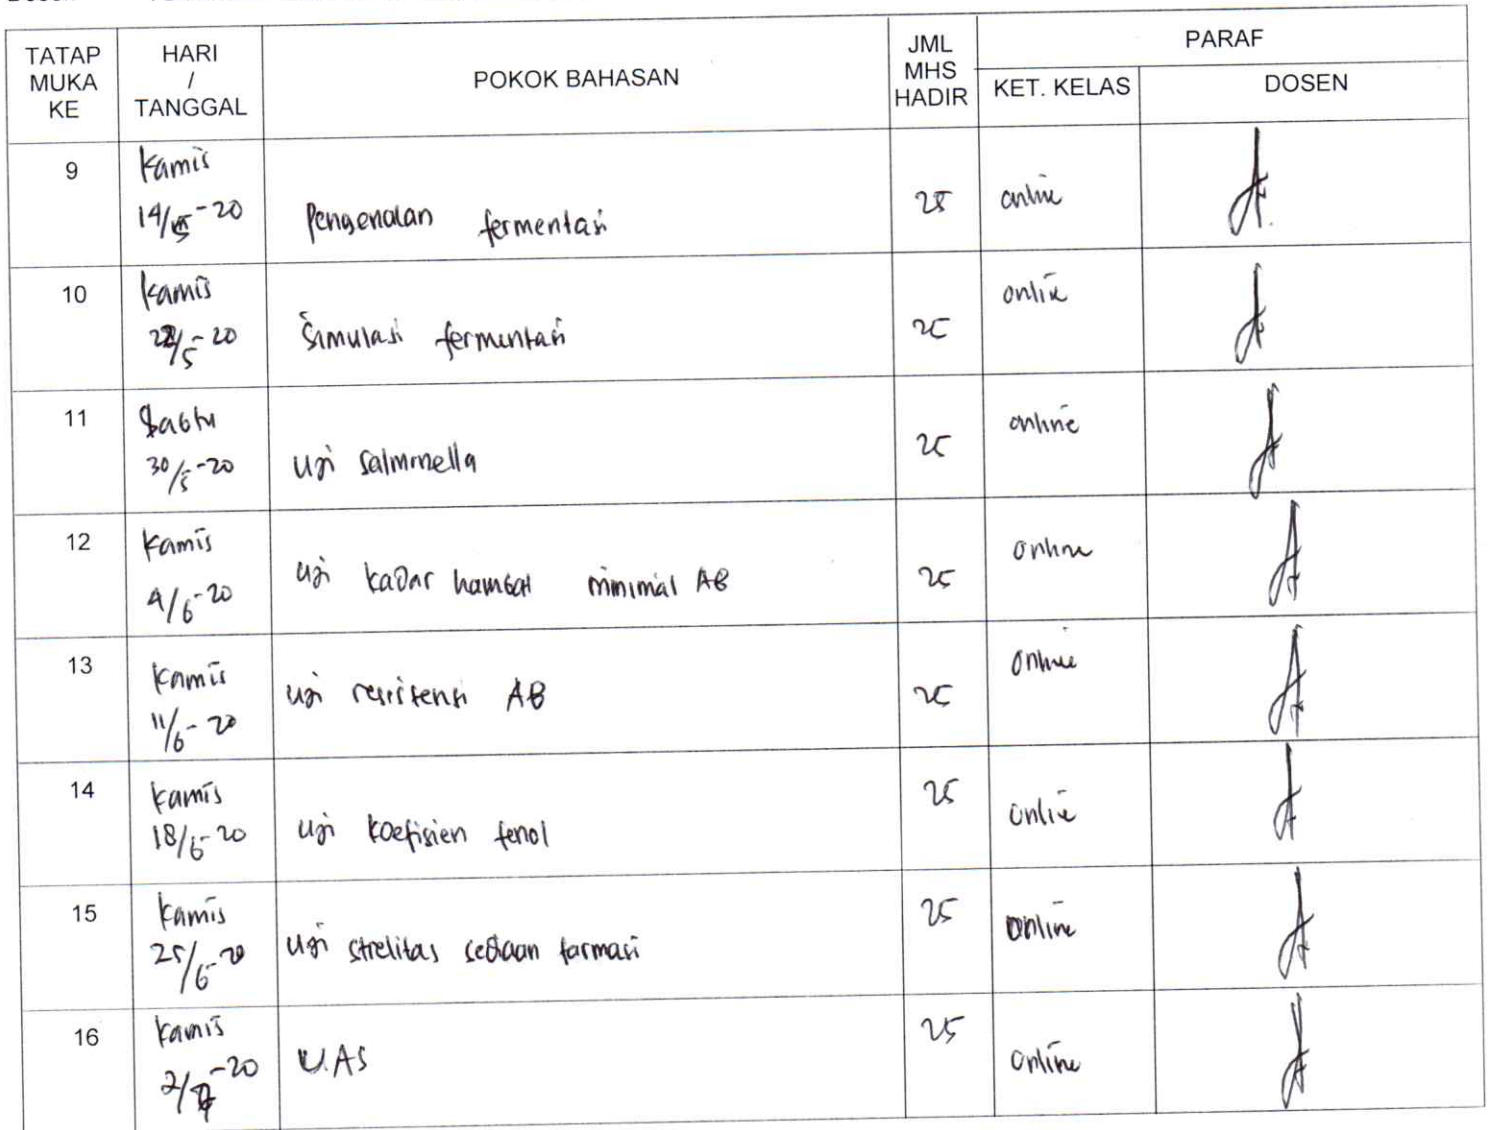 TATAP MUKA KE | HARI / TANGGAL | POKOK BAHASAN | JML MHS HADIR | PARAF
KET. KELAS | DOSEN
9 | Kamis 14/5-20 | Pengenalan fermentasi | 25 | online
10 | Kamis 22/5-20 | Simulasi fermentasi | 25 | online
11 | Sabtu 30/5-20 | Uji Salmonella | 25 | online
12 | Kamis 4/6-20 | Uji kadar hambat minimal AB | 25 | online
13 | Kamis 11/6-20 | Uji resistensi AB | 25 | online
14 | Kamis 18/6-20 | Uji koefisien fenol | 25 | online
15 | Kamis 25/6-20 | Uji strelitas sediaan farmasi | 25 | online
16 | Kamis 2/7-20 | UAS | 25 | online